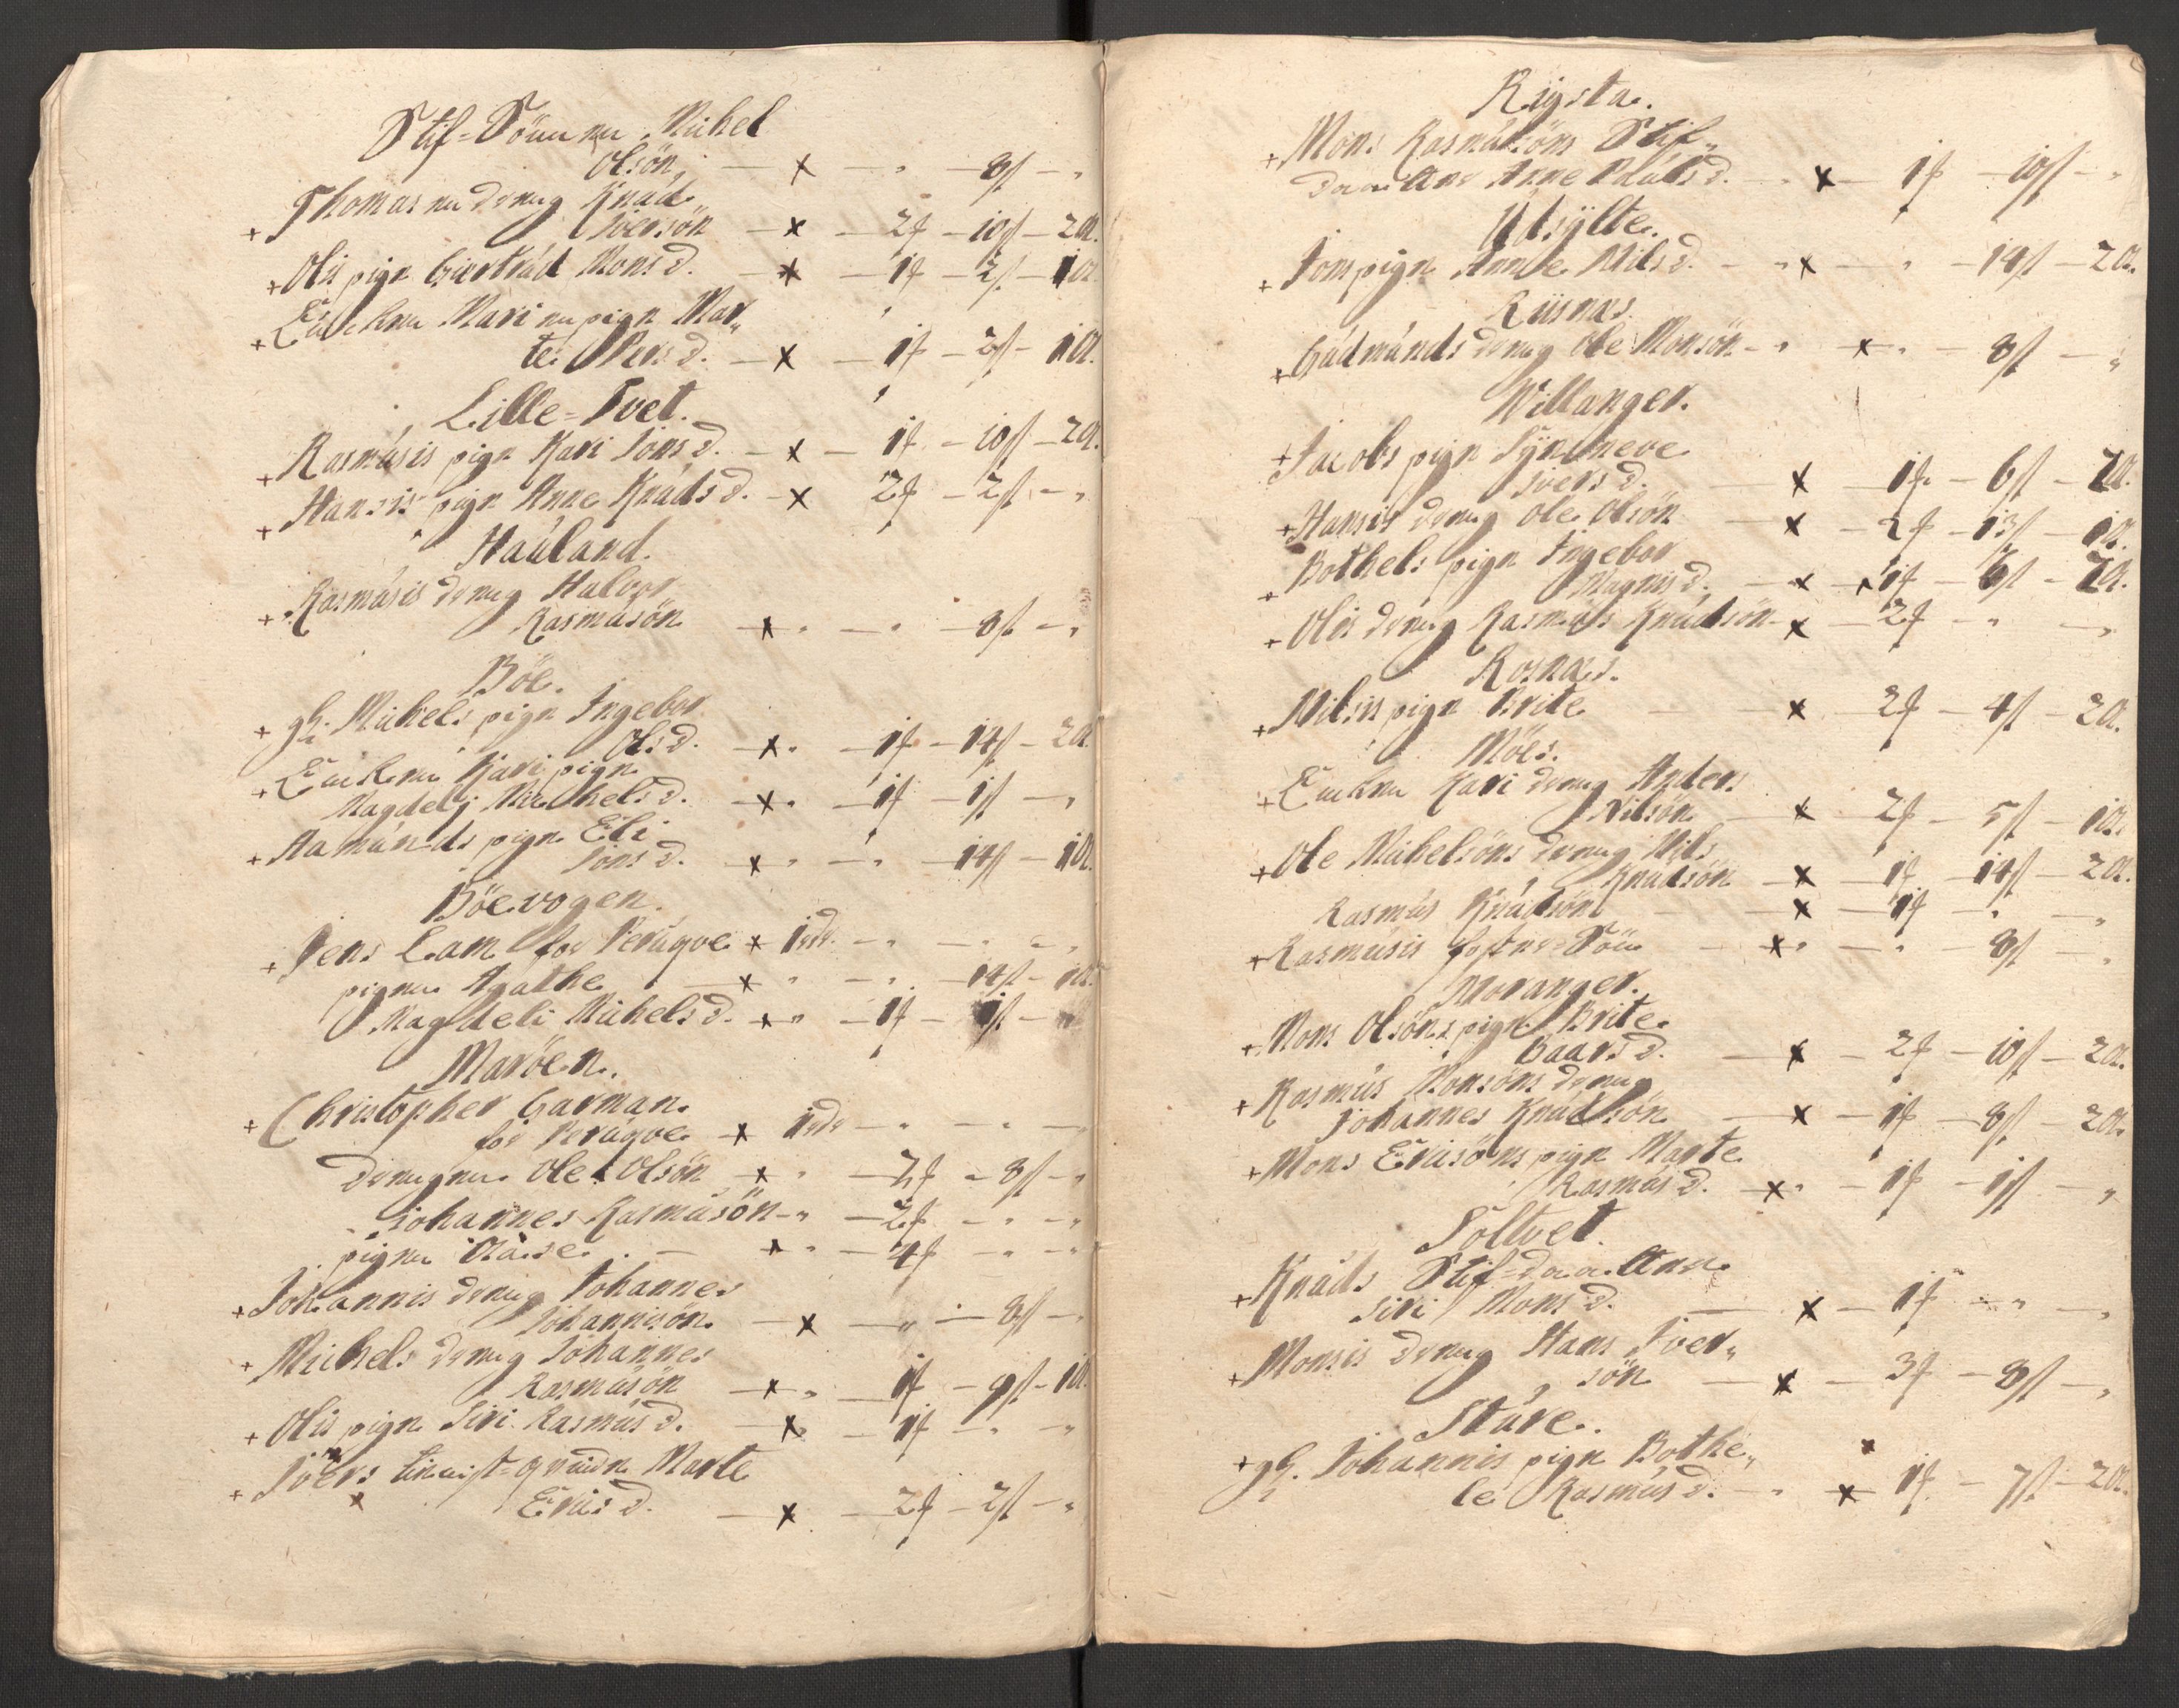 Stif-Sönnen Michel
Olsön, — x — „ — 8ß — „
+ Thomas nu dreng Knud
Iversön — x — 2f — 10ß — 2a.
+ Olis pign Giertrud Monsd. — x — 1f — 2ß — 1a.
+ Enchen Mari nu pign Mar„
te Persd. — x — 1f — 2ß — 1a.
Lille-Tvet.
+ Rasmusis pign Kari Jonsd. — x — 1f — 10ß — 2a.
+ Hansis pign Anne Knudsd. — x 2f — 2ß — „
Hauland.
+ Rasmusis dreng Halvor
Rasmusön x „ — „ — 8ß — „
Böe.
+ gl. Michels pign Ingebor
Olsd. — x „ — 1f — 14ß — 2a.
+ Enchen Kari pign
Magdelj Michelsd. — x „ — 1f — 1ß — „
+ Aamunds pign Eli
Jonsd. x „ — „ — 14ß — 1a.
Böevogen.
+ Jens Lam for Peruqve x 1rdr. — „ — „ — „
pignen Agathe — x „ — „ — 14ß — 1a.
Magdeli Michelsd. x „ — 1f — 1ß —
Maröen.
+ Christopher Garman
for Peruqve x 1rdr — „ — „ —
drengnen Ole Olsön x „ — 2f — 8ß — „
Johannes Rasmusön — „ — 2f — „ — „
pignen Aase. — x „ — 4f — „ — „
+ Johannis dreng Johannes
Johannisön — x — „ — 8ß — „
+ Michels dreng Johannes
Rasmusön — x „ — 1f — 9ß — 1a.
+ Olis pign Siri Rasmusd. x — 1f — „ — „
+ Ivers Marte
x Erisd. — x — 2f — 2ß — „
Rigsta.
+ Mons Rasmusöns Stif„
daaer Anne x — 1f — 10ß — „
Udsÿlte.
+ Jons pign Anne Nilsd. — „ x — „ — 14ß — 2a.
Riisnæs.
+ Gudmunds dreng Ole Monsön — „ x „ — 8ß — „
Villanger.
+ Jacobs pign Sÿnneve
Iversd. x — 1f — 6ß — 2a.
+ Hansis dreng Ole Olsön — x — 2f — 13ß — 1a.
+ Bothels pign Ingebor
Magnisd. — x — 1f — 6ß — 2a.
+ Olis dreng Rasmus Knudsön — x — 2f — „ — „
Rosnæs.
+ Nilsis pign Brite — x 2f — 4ß — 2a.
Möes.
+ Enchen Kari dreng Anders
Nilsön — x 2f — 5ß — 1a.
+ Ole Michelsöns dreng Nils
Knudsön — x — 1f 14ß — 2a.
Rasmus Knudsön — x — 1f — „ „
+ Rasmusis foster Sön — x „ — „ 8ß — „
Moranger.
+ Mons Olsöns pign Brite
Baarsd. — x — 2f — 10ß — 2a.
+ Rasmus Monsöns dreng
Johannes Knudsön — x — 1f — 8ß — 2a.
+ Mons Ericsöns pign Marte
Rasmusd. — x „ — 1f — 1ß — „
Toltvet.
+ Knuds Stif-daaer
Siri Monsd. — x — 1f — „ — „
+ Monsis dreng Hans Iver„
sön — x — 3f — 8ß — „
Sture.
+ gl. Johannis pign Bothe„ x
le Rasmusd. — „ x 1f — 7ß — 2a.